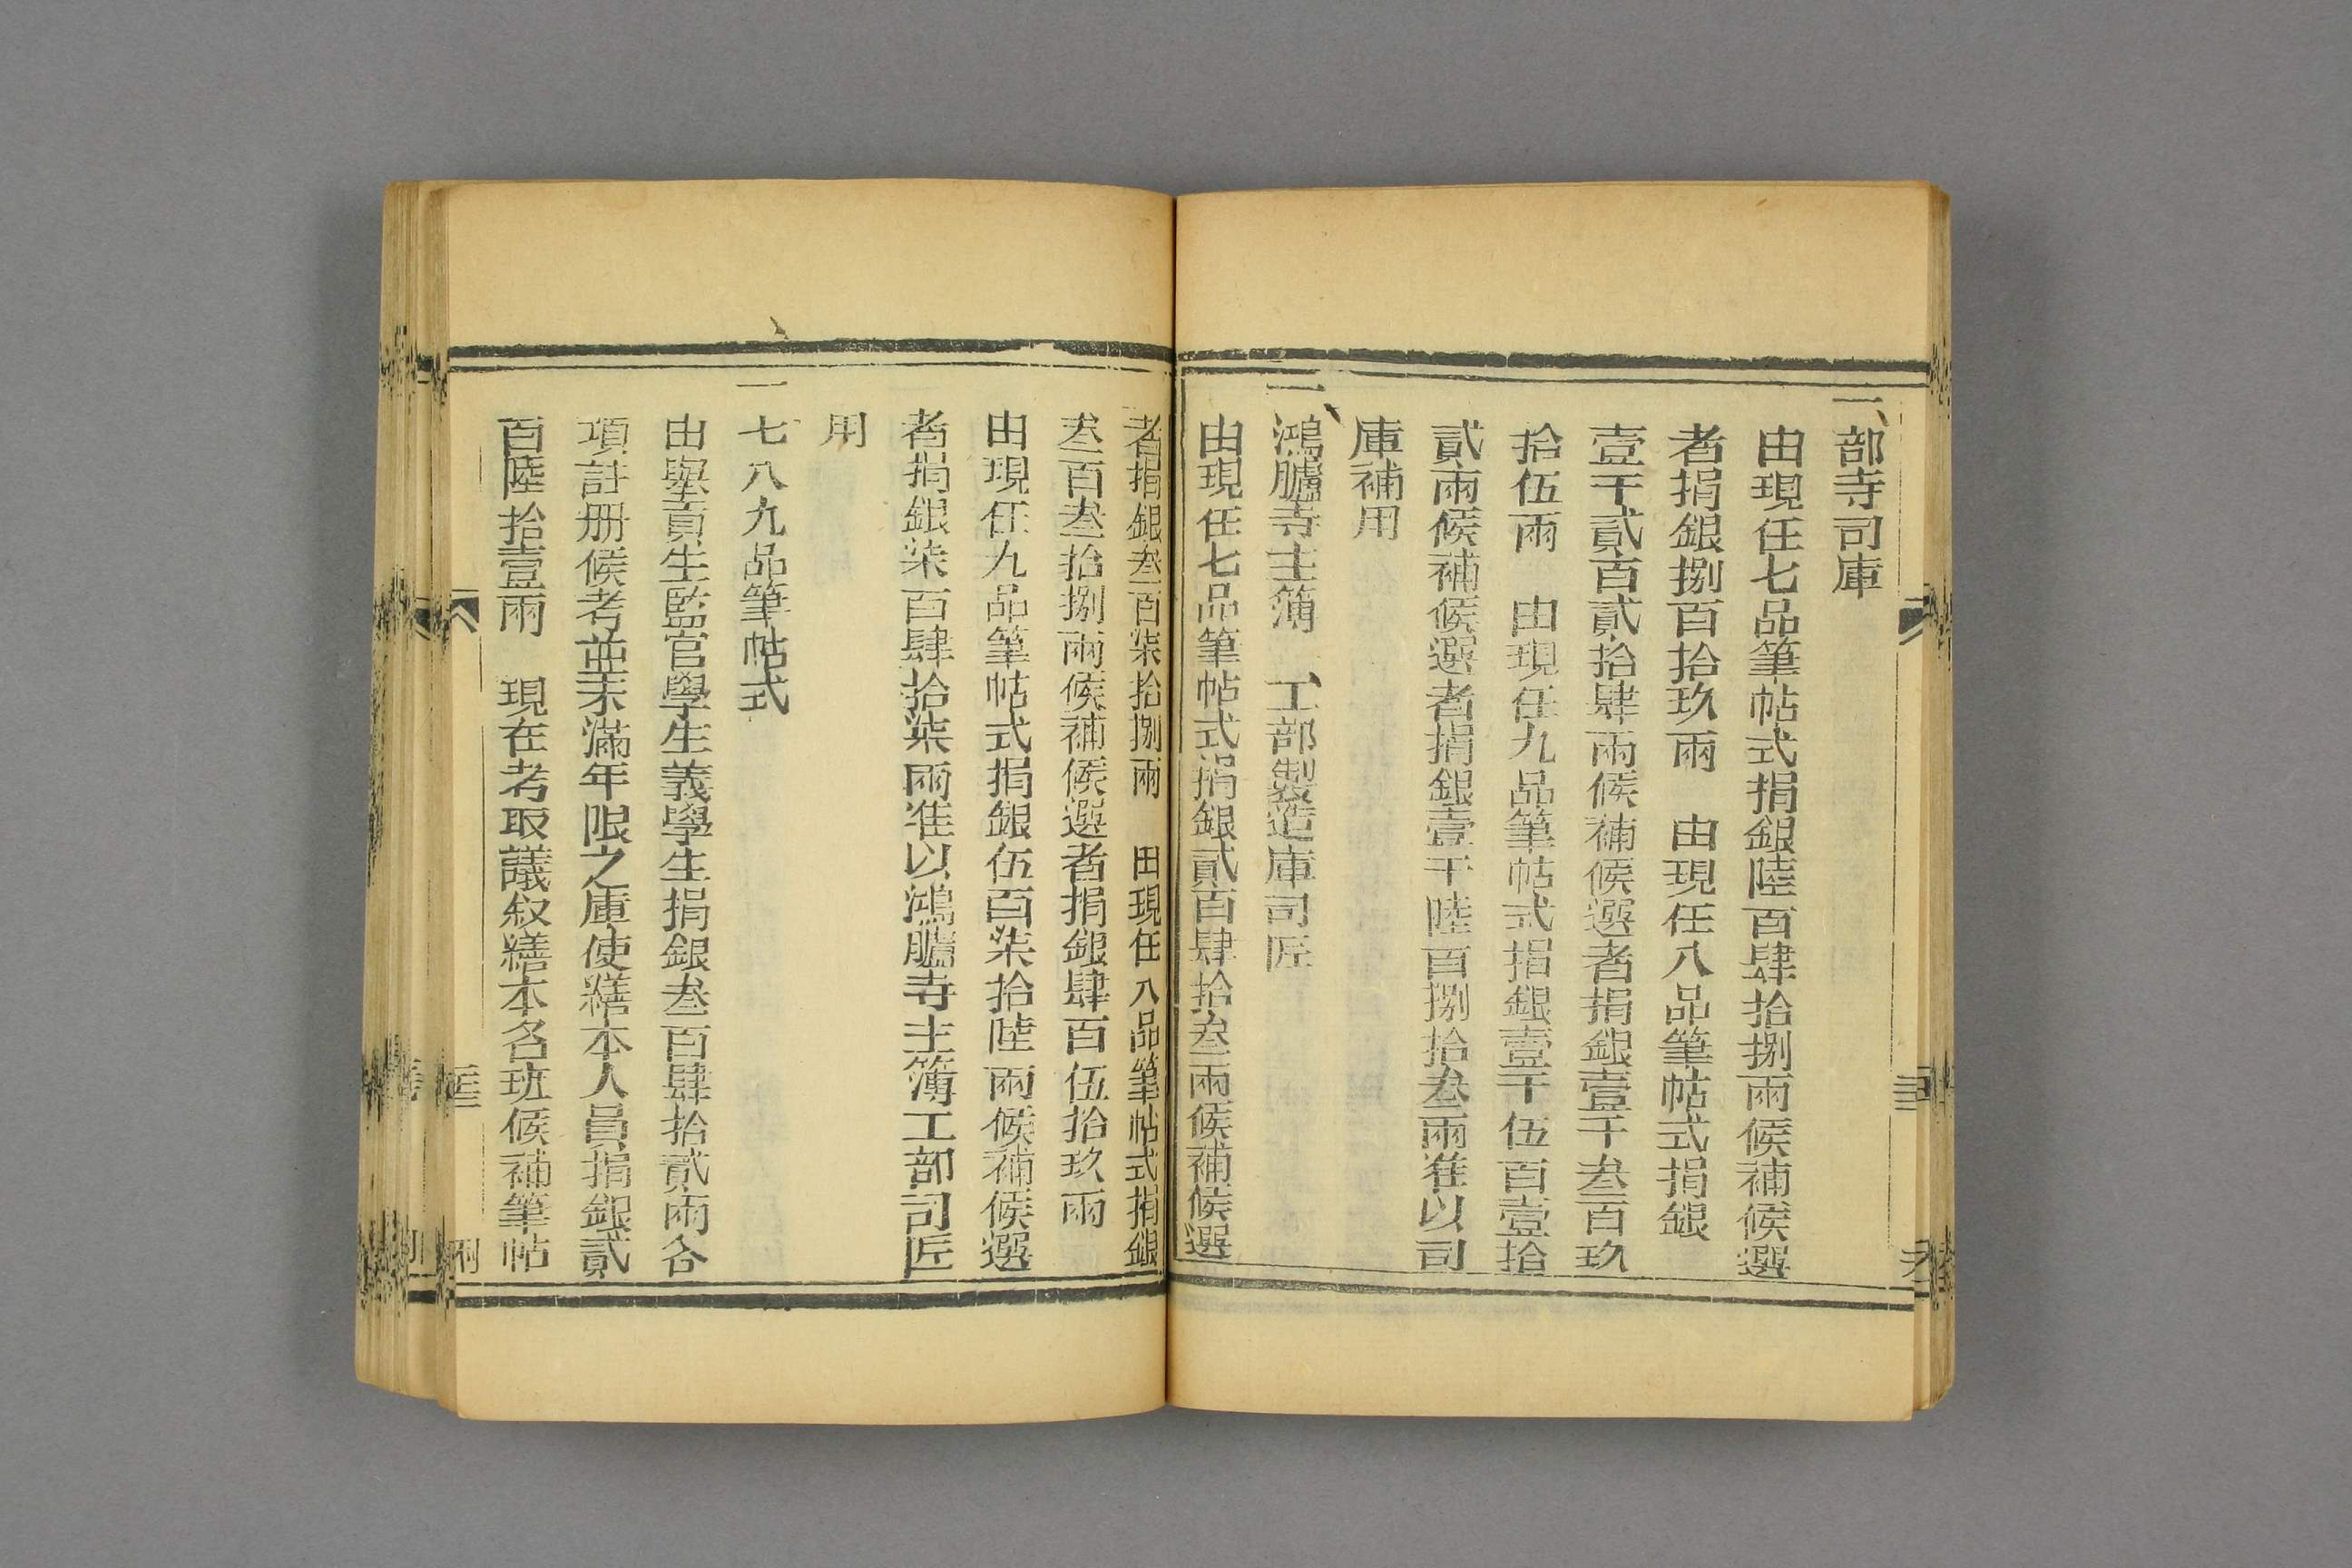 一部寺司庫
由現任七品筆帖式捐銀陸百肆拾捌兩候補候選
者捐銀捌百拾玖兩　由現任八品筆帖式捐銀
壹千貳百貳拾肆兩候補候選者捐銀壹千叁百玖
拾伍兩　由現任九品筆帖式捐銀壹千伍百壹拾
貳兩候補候選者捐銀壹千陸百捌拾叁兩准以司
庫補用
一鴻臚寺主簿　工部製造庫司匠
由現任七品筆帖式捐銀貳百肆拾叁兩候補候選
者捐銀叁百柒拾捌兩　由現任八品筆帖式捐銀
叁百叁拾捌兩候補候選者捐銀肆百伍拾玖兩
由現任九品筆帖式捐銀伍百柒拾陸兩候補候選
者捐銀柒百肆拾柒兩准以鴻臚寺主簿工部司匠
用
一七八九品筆帖式
由舉貢生監官學生義學生捐銀叁百肆拾貳兩各
項註册候考並未滿年限之庫使繕本人員捐銀貳
百陸拾壹兩　現在考取議敘繕本各班候補筆帖